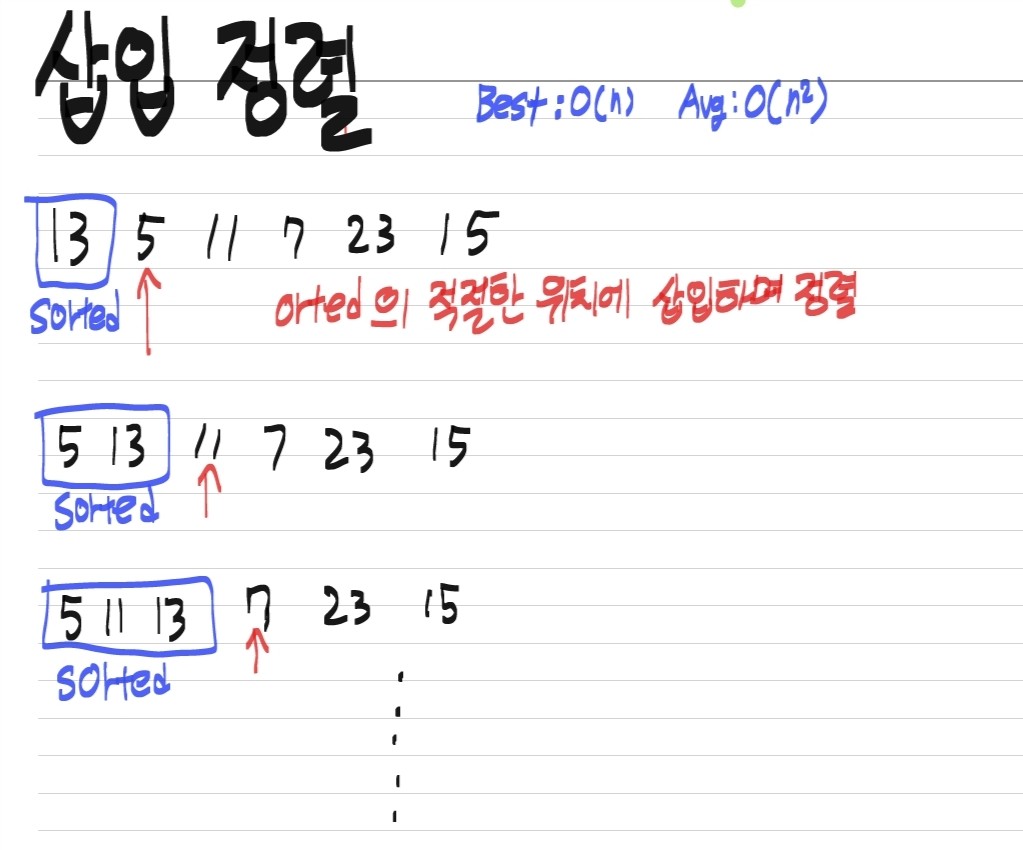 삽입 정렬
Best : O(n) Avg : O(n²)
13 5 11 7 23 15
sorted
orted의 적절한 위치에 삽입하며 정렬
5 13 11 7 23 15
sorted
5 11 13 7 23 15
sorted